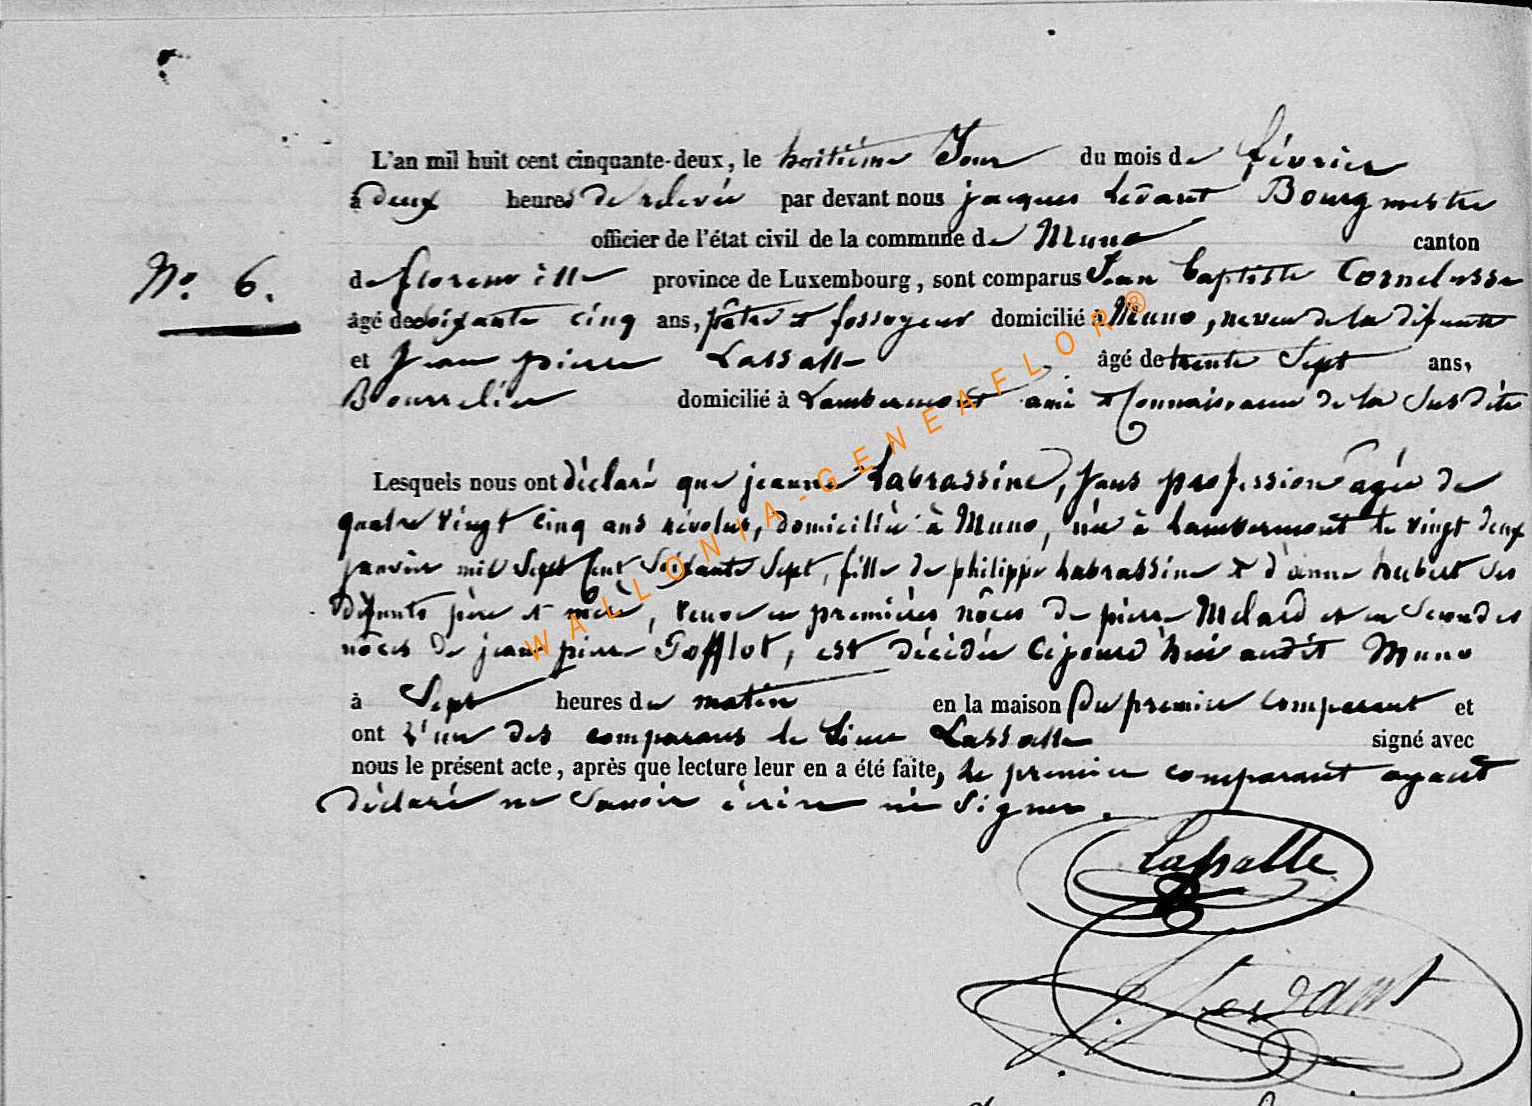 L'an mil huit cent cinquante-deux, le huitième Jour du mois de février
à deux heures de relevée par devant nous jacques Lèvant Bourgmestre
officier de l'état civil de la commune de Muno canton
No. 6. de florenville province de Luxembourg, sont comparus Jean Baptiste Cornelusse
âgé de soixante cinq ans, pâtre et fossoyeur domicilié à Muno, neveu de la défunte
et Jean pierre Lassalle âgé de trente Sept ans,
Bourrelier domicilié à Lambermont ami et Connaissance de la Susdite
Lesquels nous ont déclaré que jeanne Labrassine, Sans profession agée de
quatre vingt cinq ans révolus, domiciliée à Muno, née à Lambermont le vingt deux
janvier mil Sept Cent Soixante Sept, fille de philippe Labrassine et d'anne hubert Ses
défunts père et mère, veuve en premières nôces de pierre Melard et en Secondes
nôces de jean pierre Gofflot, est décédée Cejourd'hui audit Muno
à Sept heures du matin en la maison Du premier comparant et
ont l'un des comparans le Sieur Lassalle signé avec
nous le présent acte, après que lecture leur en a été faite, le premier comparant ayant
déclaré ne Savoir écrire ni Signer.
Lassalle
Lèvant
WALLONIA-GENEAFLOR®